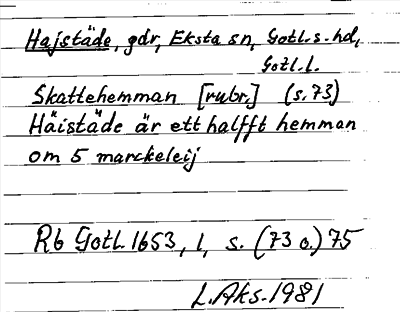 Hajstäde, gdr, Eksta sn, Gotl. s. hd,
Gotl. l.
Skattehemman [rubr.] (s. 73)
Häistäde är ett halfft hemman
om 5 marckeleij
Rb Gotl. 1653, 1, s. (73 o.) 75
L. Aks. 1981